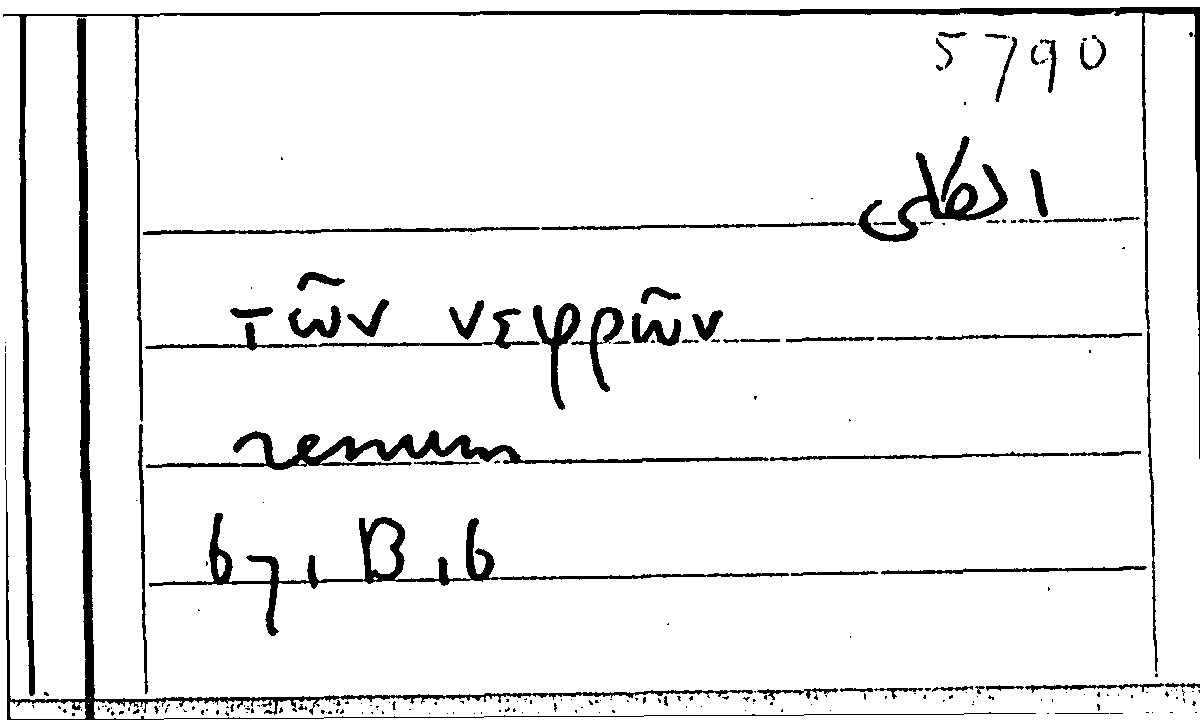 5790
الكلى
τῶν νεφρῶν
renum
67, B, 6